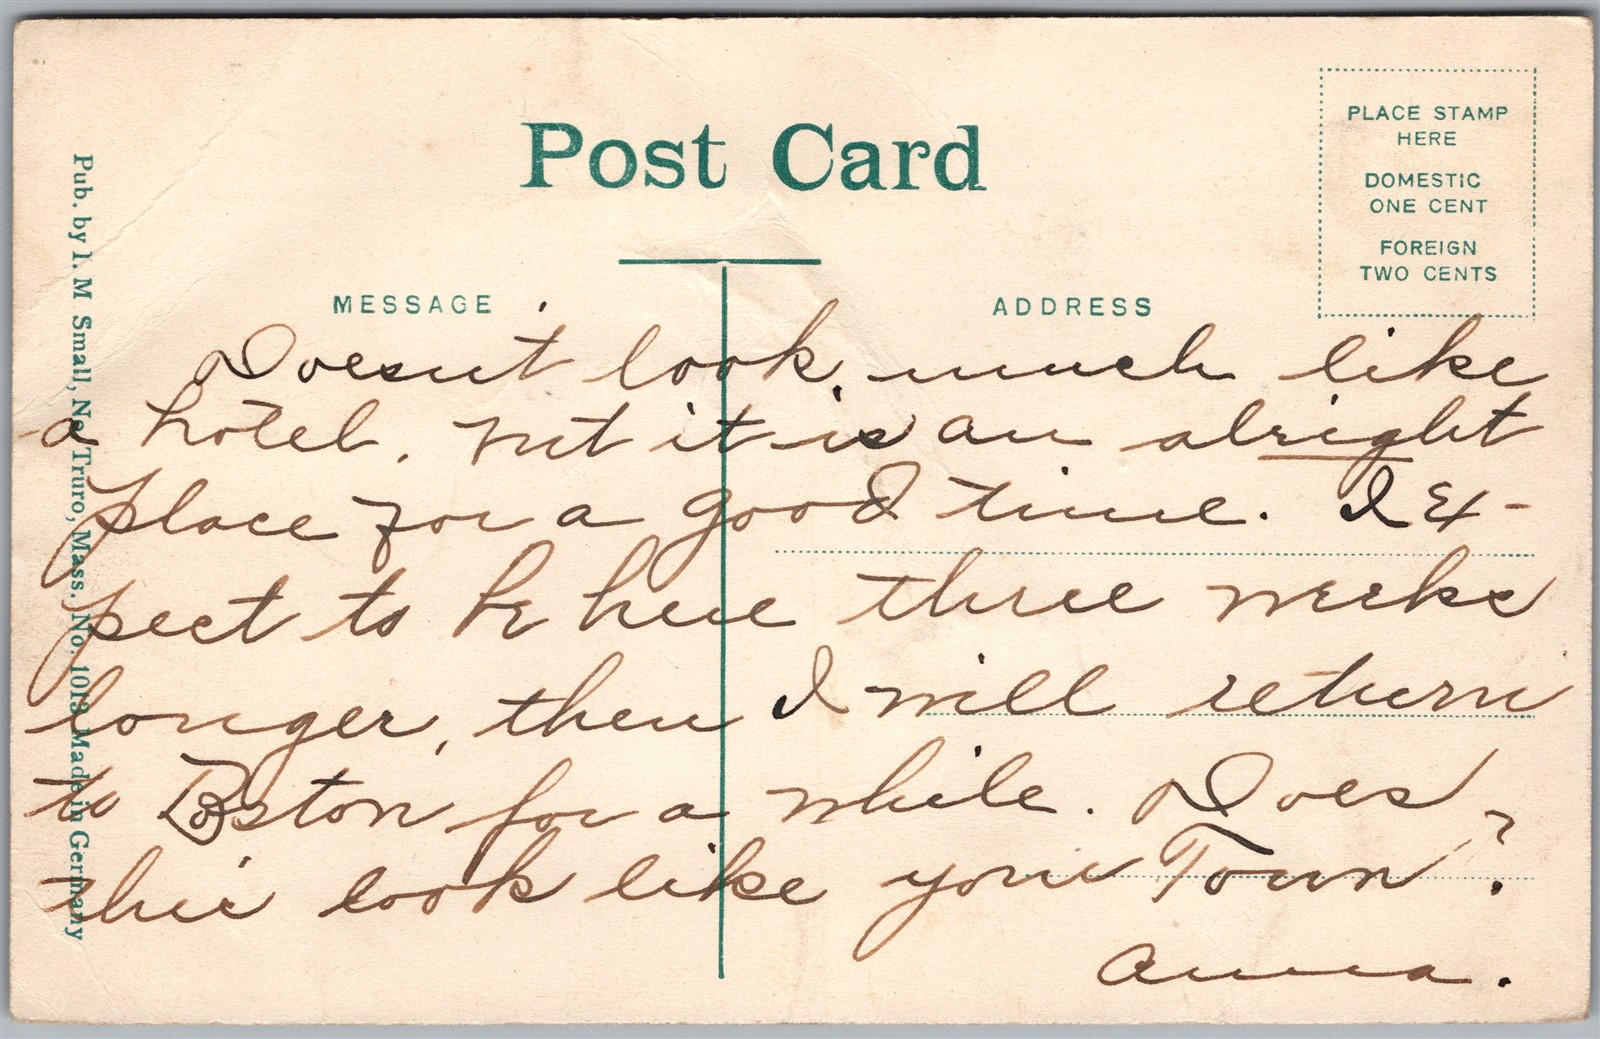 Post Card
PLACE STAMP
HERE
DOMESTIC
ONE CENT
FOREIGN
TWO CENTS
MESSAGE
ADDRESS
Pub. by I. M Small, No. Truro, Mass. No. 1013 Made in Germany
Doesn't look much like
a hotel, but it is an alright
place for a good time. I Ex-
pect to be here three weeks
longer, then I will return
to Boston for a while. Does
this look like your Town?
Anna.